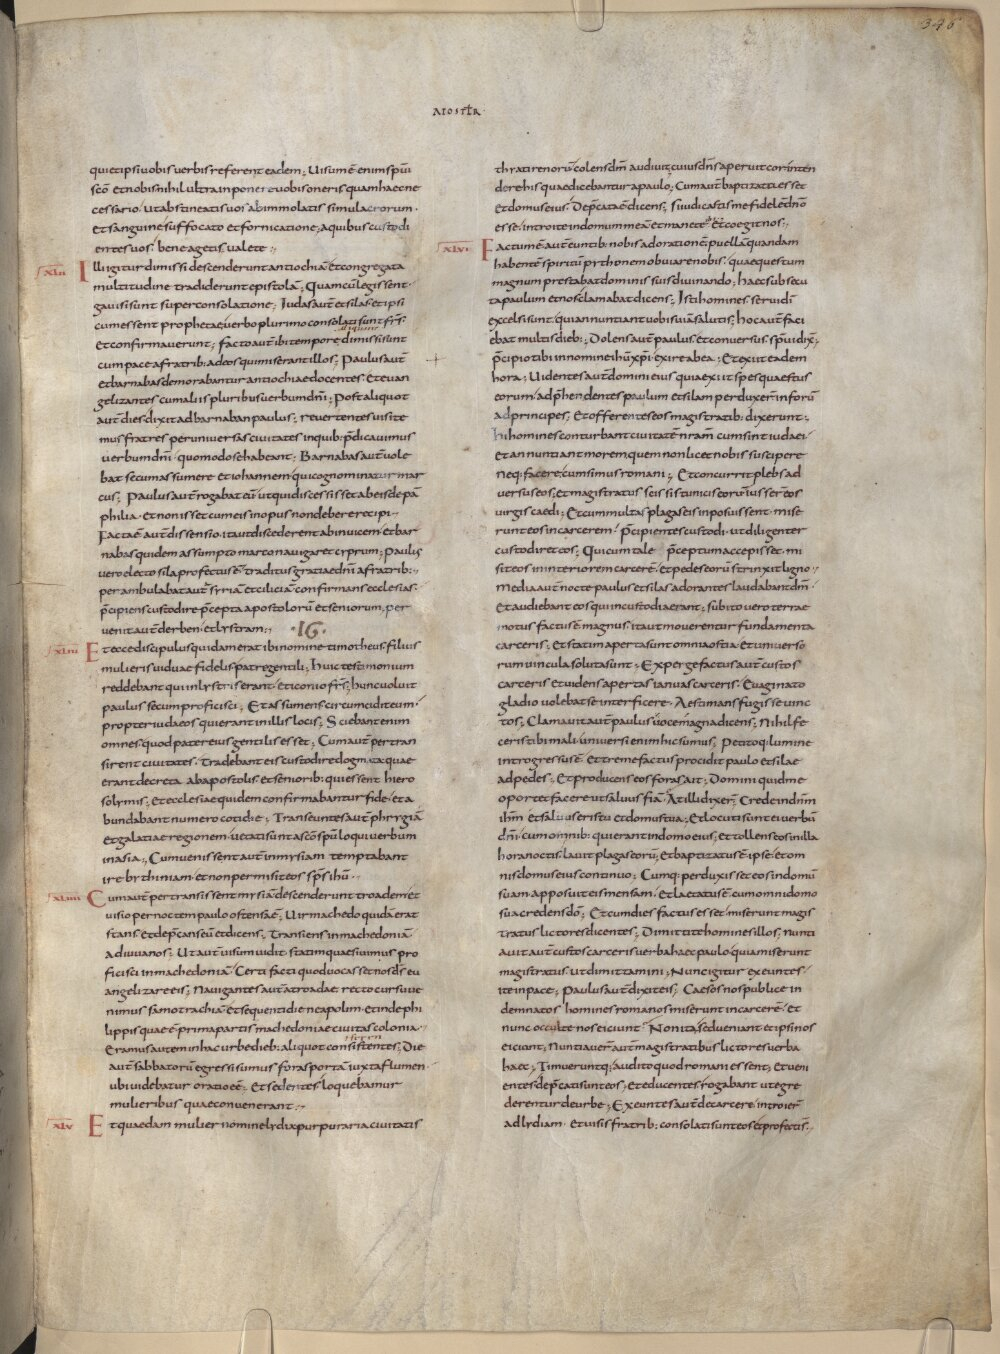 346
APOSTLR
qui et ipsi vobis verbis referent eadem; Uisum ē enim spui
scō et nobis nihil ultra inponere vobis oneris quam haec ne
cessario. ut abstineatis vos ab immolatis simulacrorum.
et sanguine suffocato et fornicatione; a quibus custodi
entes vos. bene agetis valete:;
XLII Illi igitur dimissi descenderunt antiochiā Et congregata
multitudine tradiderunt epistolā; Quam cū legissent.
gavisi sunt super consolatione; Iudas aut̄ et silas. et ipsi
cum essent prophetae. verbo plurimo consolati sunt frs̄.
Et confirmaverunt; facto aut̄ ibi tempore dimissi sunt
cum pace a fratrib: ad eos qui miserant illos; Paulus aut̄
et barnabas demorabantur antiochiae docentes. Et evan
gelizantes cum aliis pluribus verbum dn̄i; Post aliquot
aut̄ dies dixit ad barnaban paulus; revertentes visite
mus fratres per universas civitates in quib: p̄dicavimus
verbum dn̄i. quomodo se habeant; Barnabas aut̄ vole
bat secum assumere et iohannem qui cognominatur mar
cus; Paulus aut̄ rogabat eū ut qui discessisset ab eis de pā
philia. et non isset cum eis in opus non debere recipi;
Facta ē aut̄ dissensio. ita ut discederent ab invicem. et bar
nabas quidem assumpto marco navigaret cyprum; Paulus
vero electo sila profectus ē. traditus gratiae dn̄i a fratrib:;
perambulabat aut̄ syriā et ciliciā confirmans ecclesias.
p̄cipiens custodire p̄cepta apostolorū et seniorum; per
venit aut̄ derben. et lystram; ·16·
XLIII Et ecce discipulus quidam erat ibi nomine timotheus. filius
mulieris viduae fidelis patre gentili; huic testimonium
reddebant qui in lystris erant. et iconio frs̄; hunc voluit
paulus secum proficisci; Et assumens circumcidit eum.
propter iudaeos qui erant in illis locis; Sciebant enim
omnes quod pater eius gentilis esset; Cum aut̄ pertran
sirent civitates. tradebant eis custodire dogmata quae
erant decreta ab apostolis. et seniorib: qui essent hiero
solymis; Et ecclesiae quidem confirmabantur fide. et a
bundabant numero cotidie; Transeuntes aut̄ phrygiā
et galatiae regionem. vetati sunt a scō spu loqui verbum
in asia; Cum venissent aut̄ in mysiam temptabant
ire bythiniam. et non permisit eos sps̄ ihū.
XLIIII Cum aut̄ pertransissent mysiā. descenderunt troadem et
visio per noctem paulo ostensa ē; Uir machedo quidā erat
stans. et dep̄cans eū et dicens; Transiens in machedoniā
adiuva nos; Ut aut̄ visum vidit. statim quaesivimus pro
ficisci in machedoniā. Certi facti quod vocasset nos ds̄ eu
angelizare eis; Navigantes aut̄ a troade. recto cursu ve
nimus samotrachiā. et sequenti die neapolim. et inde phi
lippis quae ē prima partis machedoniae civitas colonia.
Eramus autem in hac urbe dieb: aliquot consistentes; Die
aut̄ sabbatorū egressi sumus foras portā iuxta flumen.
ubi videbatur oratio eē. Et sedentes loquebamur
mulieribus quae convenerant;
XLV Et quaedam mulier nomine lydia purpuraria civitatis
thratirenorū colens dm̄ audivit; cuius dn̄s aperuit cor inten
dere his quae dicebantur a paulo; Cum aut̄ baptizata esset
et domus eius. Dep̄cata ē dicens; si iudicastis me fidelē dn̄o
esse. introite in domum meā et manete. Et coegit nos;
XLVI Factum ē aut̄ euntib: nobis ad orationē. puellā quandam
habentē spiritū pythonem obviare nobis. quae questum
magnum prestabat dominis suis divinando; haec subsecu
ta paulum et nos clamabat dicens; Isti homines servi di
excelsi sunt. qui annuntiant vobis viā salutis; hoc aut̄ faci
ebat multis dieb:; Dolens aut̄ paulus. et conversus. spui dix̄;
p̄cipio tibi in nomine ihū xp̄i exire ab ea; Et exiit eadem
hora; Uidentes aut̄ domini eius quia exiit spes quaestus
eorum. adp̄hendentes paulum et silam perduxer̄ in forū
ad principes; Et offerentes eos magistratib: dixerunt;
hi homines conturbant civitatē nr̄am cum sint iudaei.
Et annuntiant morem. quem non licet nobis suscipere
neq; facere; cum simus romani; Et concurrit plebs ad
versus eos; Et magistratus scissis tunicis eorū iusser eos
virgis caedi; Et cum multas plagas eis inposuissent. mise
runt eos in carcerem. p̄cipientes custodi. ut diligenter
custodiret eos; Qui cum tale p̄ceptum accepisset. mi
sit eos in interiorem carcerē. et pedes eorū strinxit ligno;
Media aut̄ nocte paulus et silas adorantes laudabant dm̄.
Et audiebant eos qui in custodia erant; subito vero terrae
motus factus ē magnus. ita ut moverentur fundamenta
carceris; Et statim aperta sunt omnia ostia. et universo
rum vincula soluta sunt; Expergefactus aut̄ custos
carceris. et videns apertas ianuas carceris. Evaginato
gladio volebat se interficere. Aestimans fugisse vinc
tos; Clamavit aut̄ paulus uoce magna dicens; Nihil fe
ceris tibi mali. universi enim hic sumus; Petitoq; lumine
introgressus ē. Et tremefactus procidit paulo et silae
ad pedes; Et producens eos foras. Ait; Domini quid me
oportet facere ut salvus fiā. At illi dixer̄; Crede in dn̄m
ihm̄ et salvus eris tu et domus tua; Et locuti sunt ei verbū
dn̄i cum omnib: qui erant in domo eius; et tollens eos in illa
hora noctis. lavit plagas eorū; Et baptizatus ē ipse. et om
nis domus eius continuo; Cumq: perduxisset eos in domū
suam. apposuit eis mensam. Et laetatus ē. cum omni domo
sua credens dō; Et cum dies factus esset. miserunt magis
tratus lictores dicentes; Dimitte homines illos; nunti
avit aut̄ custos carceris verba haec paulo. quia miserunt
magistratus ut dimittamini; Nunc igitur exeuntes
ite in pace; Paulus aut̄ dixit eis; Caesos nos publice in
demnatos homines romanos miserunt in carcerē. Et
nunc occulte nos eiciunt. Non ita; sed veniant et ipsi nos
eiciant; Nuntiaver̄ aut̄ magistratibus lictores verba
haec; Timueruntq; audito quod romani essent. Et veni
entes dep̄cati sunt eos; et educentes rogabant ut egre
derentur de urbe; Exeuntes aut̄ de carcere. introier̄
ad lydiam. Et visis fratrib: consolati sunt eos et profecti s̄;